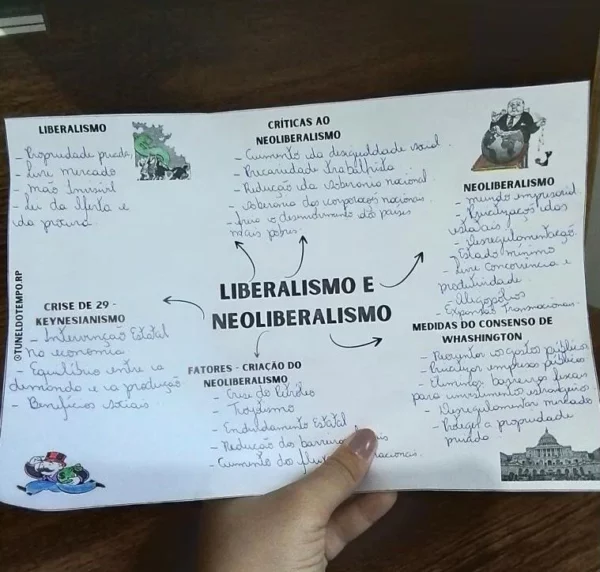 LIBERALISMO
- Propriedade privada
- Livre mercado
- Mão Invisível
- Lei da Oferta e
da procura
CRÍTICAS AO
NEOLIBERALISMO
- Aumento da desigualdade social.
- Precariedade Trabalhista
- Redução da soberania nacional
- soberania das corporações nacionais.
- freio o desenvolvimento dos países
mais pobres.
NEOLIBERALISMO
- mundo empresarial.
- Privatizações das
estatais
- Desregulamentação.
- Estado mínimo
- Livre Concorrência e
produtividade.
- Oligopólios
- Expansão Transnacionais.
LIBERALISMO E
NEOLIBERALISMO
@TUNELDOTEMPO.RP
CRISE DE 29 -
KEYNESIANISMO
- Intervenção Estatal
na economia
- Equilíbrio entre a
demanda e a produção
- Benefícios sociais.
FATORES - CRIAÇÃO DO
NEOLIBERALISMO
- Crise do Petróleo
- Toyotismo
- Endividamento Estatal
- Redução das barreiras
- Aumento dos
MEDIDAS DO CONSENSO DE
WHASHINGTON
- os gastos públicos
- Privatizar empresas públicas
- Eliminar barreiras fiscais
para investimentos estrangeiros
- Desregulamentar mercado
- Proteger a propriedade
privada